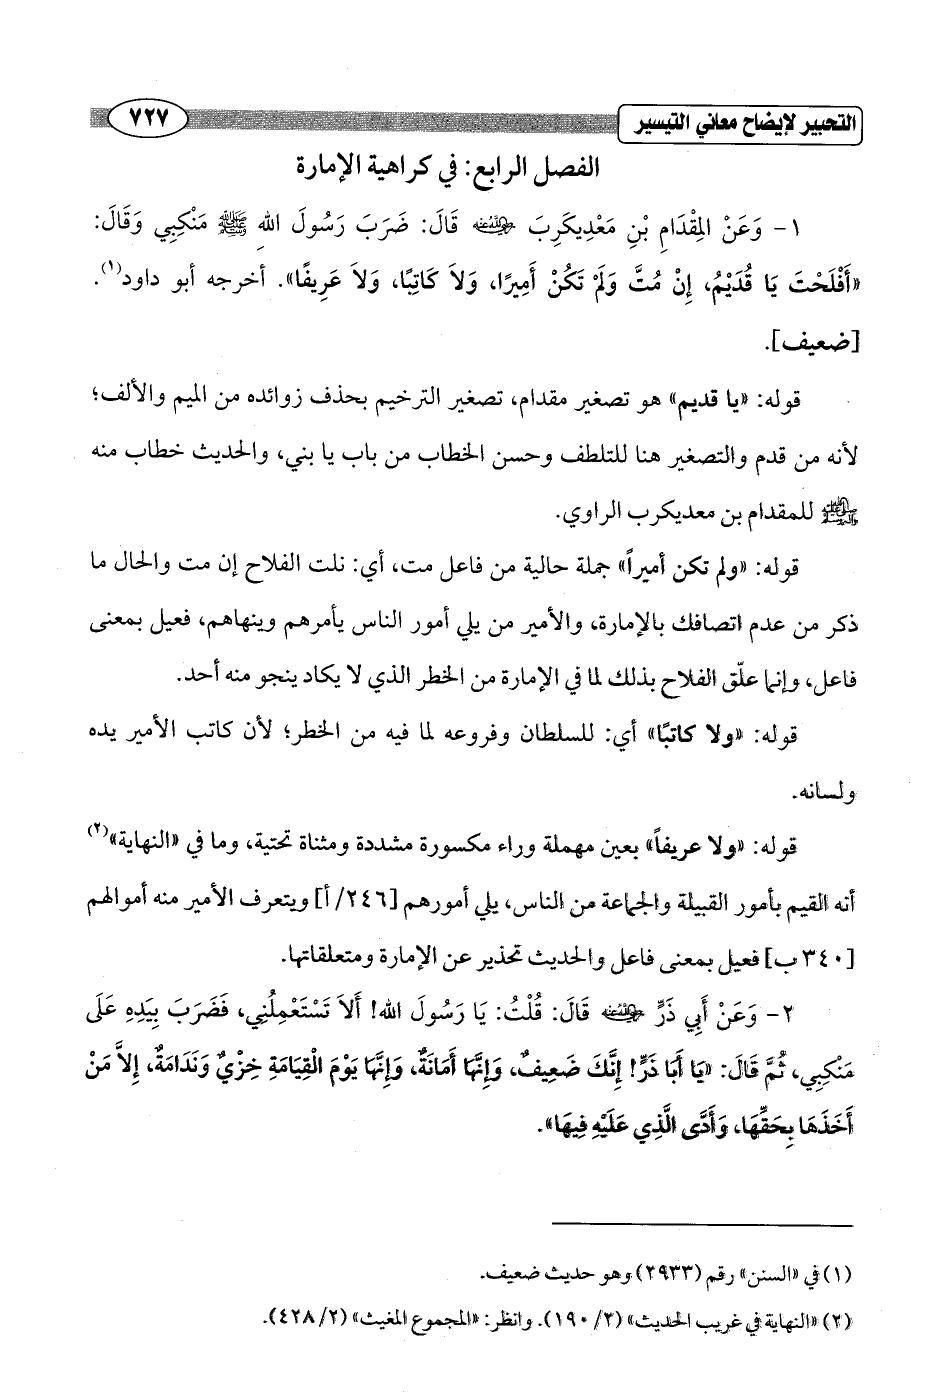 التحبير لإيضاح معاني التيسير ٧٢٧
الفصل الرابع: في كراهية الإمارة
١- وَعَنْ المِقْدَامِ بْنِ مَعْدِيكَرِبَ رضي الله عنه قَالَ: ضَرَبَ رَسُولَ اللهِ ﷺ مَنْكِبِي وَقَالَ:
«أَفْلَحْتَ يَا قُدَيْمُ، إِنْ مُتَّ وَلَمْ تَكُنْ أَمِيرًا، وَلاَ كَاتِبًا، وَلاَ عَرِيفًا». أخرجه أبو داود(١).
[ضعيف].
قوله: «يا قديم» هو تصغير مقدام، تصغير الترخيم بحذف زوائده من الميم والألف؛
لأنه من قدم والتصغير هنا للتلطف وحسن الخطاب من باب يا بني، والحديث خطاب منه
ﷺ للمقدام بن معديكرب الراوي.
قوله: «ولم تكن أميراً» جملة حالية من فاعل مت، أي: نلت الفلاح إن مت والحال ما
ذكر من عدم اتصافك بالإمارة، والأمير من يلي أمور الناس يأمرهم وينهاهم، فعيل بمعنى
فاعل، وإنما علّق الفلاح بذلك لما في الإمارة من الخطر الذي لا يكاد ينجو منه أحد.
قوله: «ولا كاتبًا» أي: للسلطان وفروعه لما فيه من الخطر؛ لأن كاتب الأمير يده
ولسانه.
قوله: «ولا عريفاً» بعين مهملة وراء مكسورة مشددة ومثناة تحتية، وما في «النهاية»(٢)
أنه القيم بأمور القبيلة والجماعة من الناس، يلي أمورهم [٢٤٦/ أ] ويتعرف الأمير منه أموالهم
[٣٤٠ ب] فعيل بمعنى فاعل والحديث تحذير عن الإمارة ومتعلقاتها.
٢- وَعَنْ أَبِي ذَرٍّ رضي الله عنه قَالَ: قُلْتُ: يَا رَسُولَ الله! أَلاَ تَسْتَعْمِلُنِي، فَضَرَبَ بِيَدِهِ عَلَى
مَنْكِبِي، ثُمَّ قَالَ: «يَا أَبَا ذَرٍّ! إِنَّكَ ضَعِيفٌ، وَإِنَّهَا أَمَانَةٌ، وَإِنَّهَا يَوْمَ الْقِيَامَةِ خِزْيٌ وَنَدَامَةٌ، إِلاَّ مَنْ
أَخَذَهَا بِحَقِّهَا، وَأَدَّى الَّذِي عَلَيْهِ فِيهَا».
(١) في «السنن» رقم (٢٩٣٣) وهو حديث ضعيف.
(٢) «النهاية في غريب الحديث» (٣/ ١٩٠). وانظر: «المجموع المغيث» (٢/ ٤٢٨).